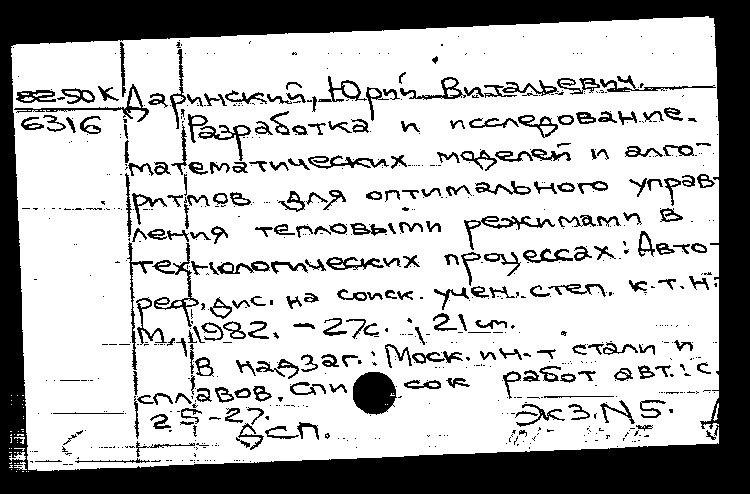 82-50К Даринский, Юрий Витальевич.
6316 Разработка и исследование
математических моделей и алго-
ритмов для оптимального управ-
ления тепловыми режимами в
технологических процессах: Авто-
реф. дис. на соиск. учен. степ. к.т.н.
М., 1982. - 27с. ; 21см.
В надзаг.: Моск. ин-т стали и
сплавов. Список работ авт.: с.
25-27.
Экз.N5.
ДСП.